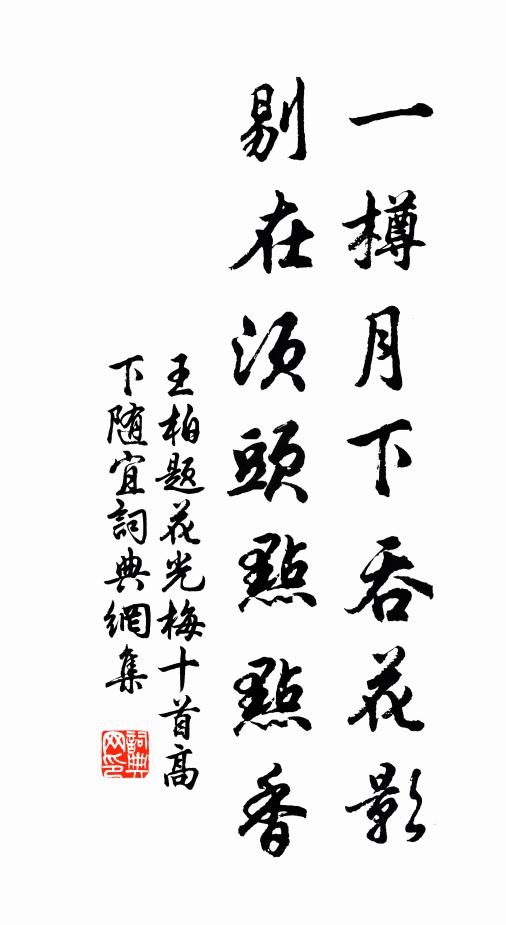 一樽月下吞花影
剔在須頭點點香
王柏題花光梅十首高
下随宜詞典網集
詞典
网印